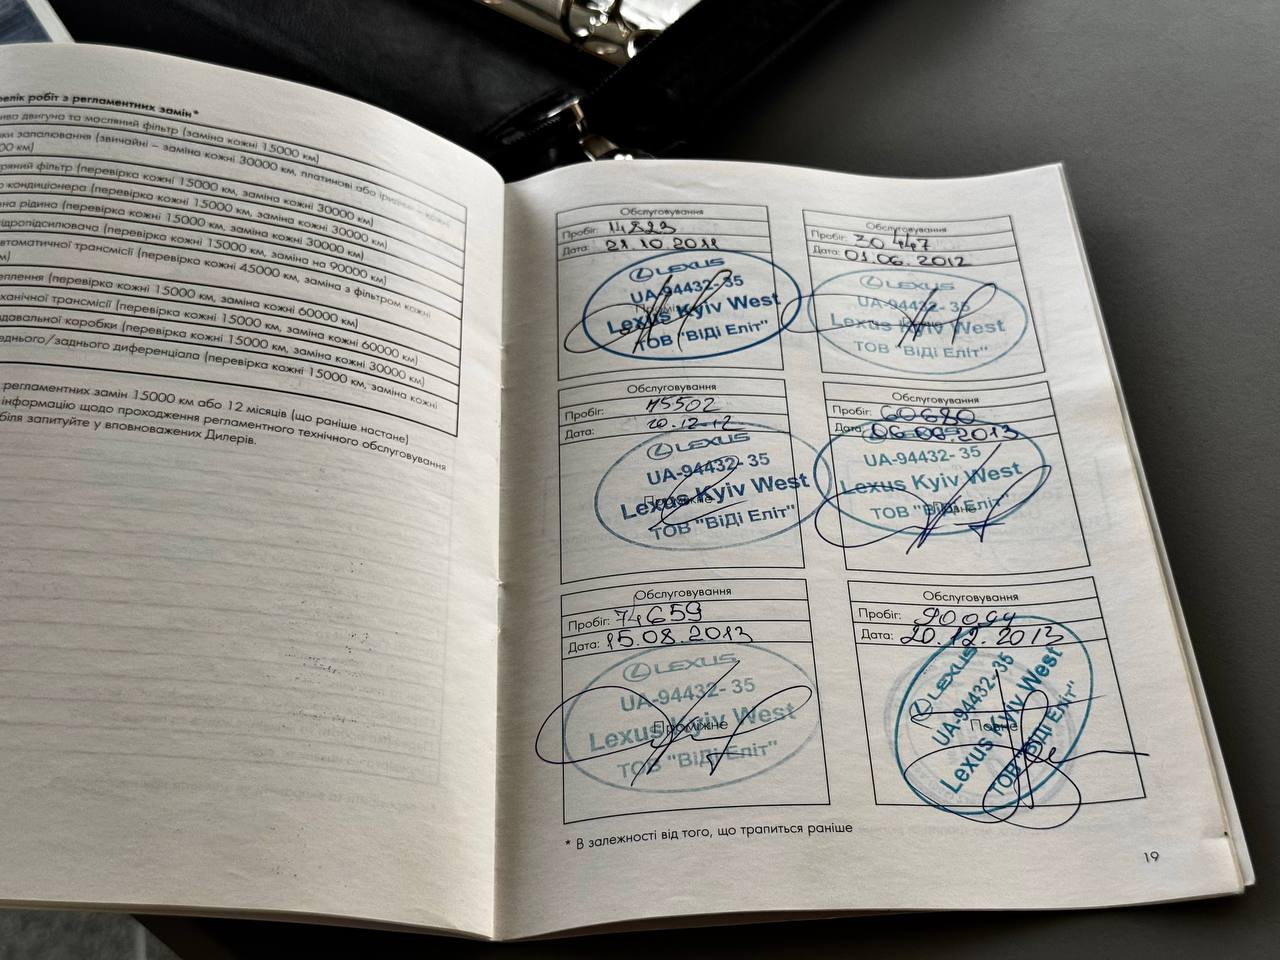 робіт з регламентних замін*
двигуна та масляний фільтр (заміна кожні 15000 км)
запалювання (звичайні – заміна кожні 30000 км, платинові або
км)
фільтр (перевірка кожні 15000 км, заміна кожні 30000 км)
кондиціонера (перевірка кожні 15000 км, заміна кожні 30000 км)
рідина (перевірка кожні 15000 км, заміна кожні 30000 км)
(перевірка кожні 15000 км, заміна на 90000 км)
трансмісії (перевірка кожні 45000 км, заміна з фільтром кожні
(перевірка кожні 15000 км, заміна кожні 60000 км)
трансмісії (перевірка кожні 15000 км, заміна кожні 60000 км)
коробки (перевірка кожні 15000 км, заміна кожні 30000 км)
/заднього диференціала (перевірка кожні 15000 км, заміна кожні
регламентних замін 15000 км або 12 місяців (що раніше настане)
інформацію щодо проходження регламентного технічного обслуговування
запитуйте у вповноважених Дилерів.
Обслуговування
Пробіг: 14823
Дата: 21.10.2011
LEXUS
UA-94432-35
Lexus Kyiv West
ТОВ "ВіДі Еліт"
Обслуговування
Пробіг: 30447
Дата: 01.06.2012
LEXUS
UA-94432-35
Lexus Kyiv West
ТОВ "ВіДі Еліт"
Обслуговування
Пробіг: 45502
Дата: 20.12.12
LEXUS
UA-94432-35
Lexus Kyiv West
Проміжне
ТОВ "ВіДі Еліт"
Обслуговування
Пробіг: 60680
Дата: 06.06.2013
LEXUS
UA-94432-35
Lexus Kyiv West
ТОВ "ВіДі Еліт"
Обслуговування
Пробіг: 74659
Дата: 15.08.2013
LEXUS
UA-94432-35
Lexus Kyiv West
Проміжне
ТОВ "ВіДі Еліт"
Обслуговування
Пробіг:
Дата: 20.12.2013
LEXUS
UA-94432-35
Lexus Kyiv West
Повне
ТОВ "ВіДі Еліт"
* В залежності від того, що трапиться раніше
19